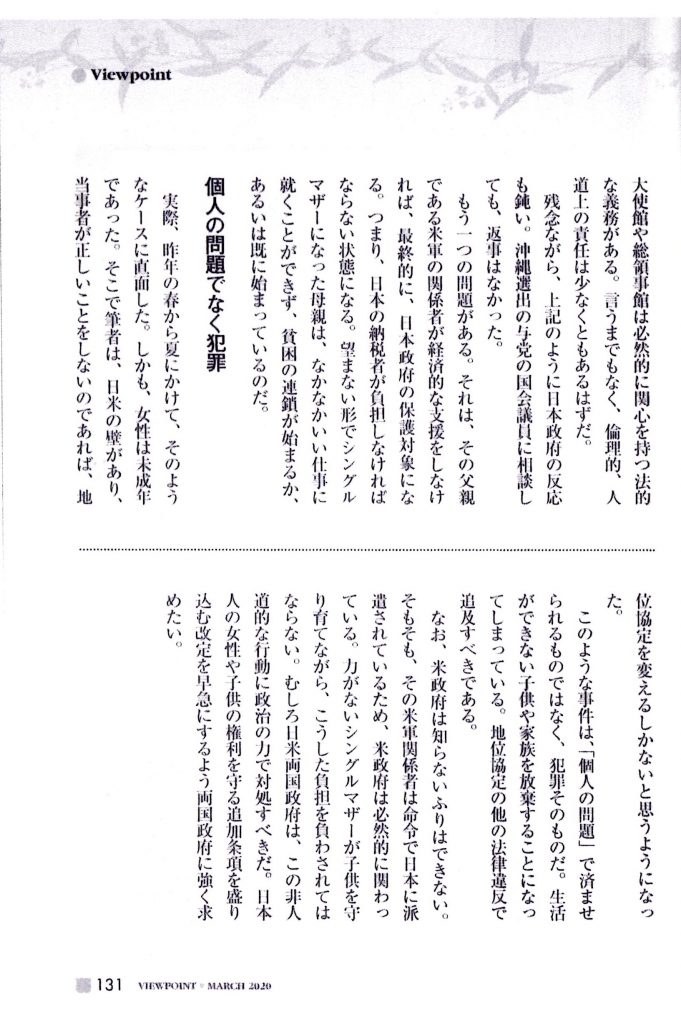 Viewpoint
大使館や総領事館は必然的に関心を持つ法的
な義務がある。言うまでもなく、倫理的、人
道上の責任は少なくともあるはずだ。
残念ながら、上記のように日本政府の反応
も鈍い。沖縄選出の与党の国会議員に相談し
ても、返事はなかった。
もう一つの問題がある。それは、その父親
である米軍の関係者が経済的な支援をしなけ
れば、最終的に、日本政府の保護対象にな
る。つまり、日本の納税者が負担しなければ
ならない状態になる。望まない形でシングル
マザーになった母親は、なかなかいい仕事に
就くことができず、貧困の連鎖が始まるか、
あるいは既に始まっているのだ。
個人の問題でなく犯罪
実際、昨年の春から夏にかけて、そのよう
なケースに直面した。しかも、女性は未成年
であった。そこで筆者は、日米の壁があり、
当事者が正しいことをしないのであれば、地
位協定を変えるしかないと思うようになっ
た。
このような事件は、「個人の問題」で済ませ
られるものではなく、犯罪そのものだ。生活
ができない子供や家族を放棄することになっ
てしまっている。地位協定の他の法律違反で
追及すべきである。
なお、米政府は知らないふりはできない。
そもそも、その米軍関係者は命令で日本に派
遣されているため、米政府は必然的に関わっ
ている。力がないシングルマザーが子供を守
り育てながら、こうした負担を負わされては
ならない。むしろ日米両国政府は、この非人
道的な行動に政治の力で対処すべきだ。日本
人の女性や子供の権利を守る追加条項を盛り
込む改定を早急にするよう両国政府に強く求
めたい。
131 VIEWPOINT MARCH 2020